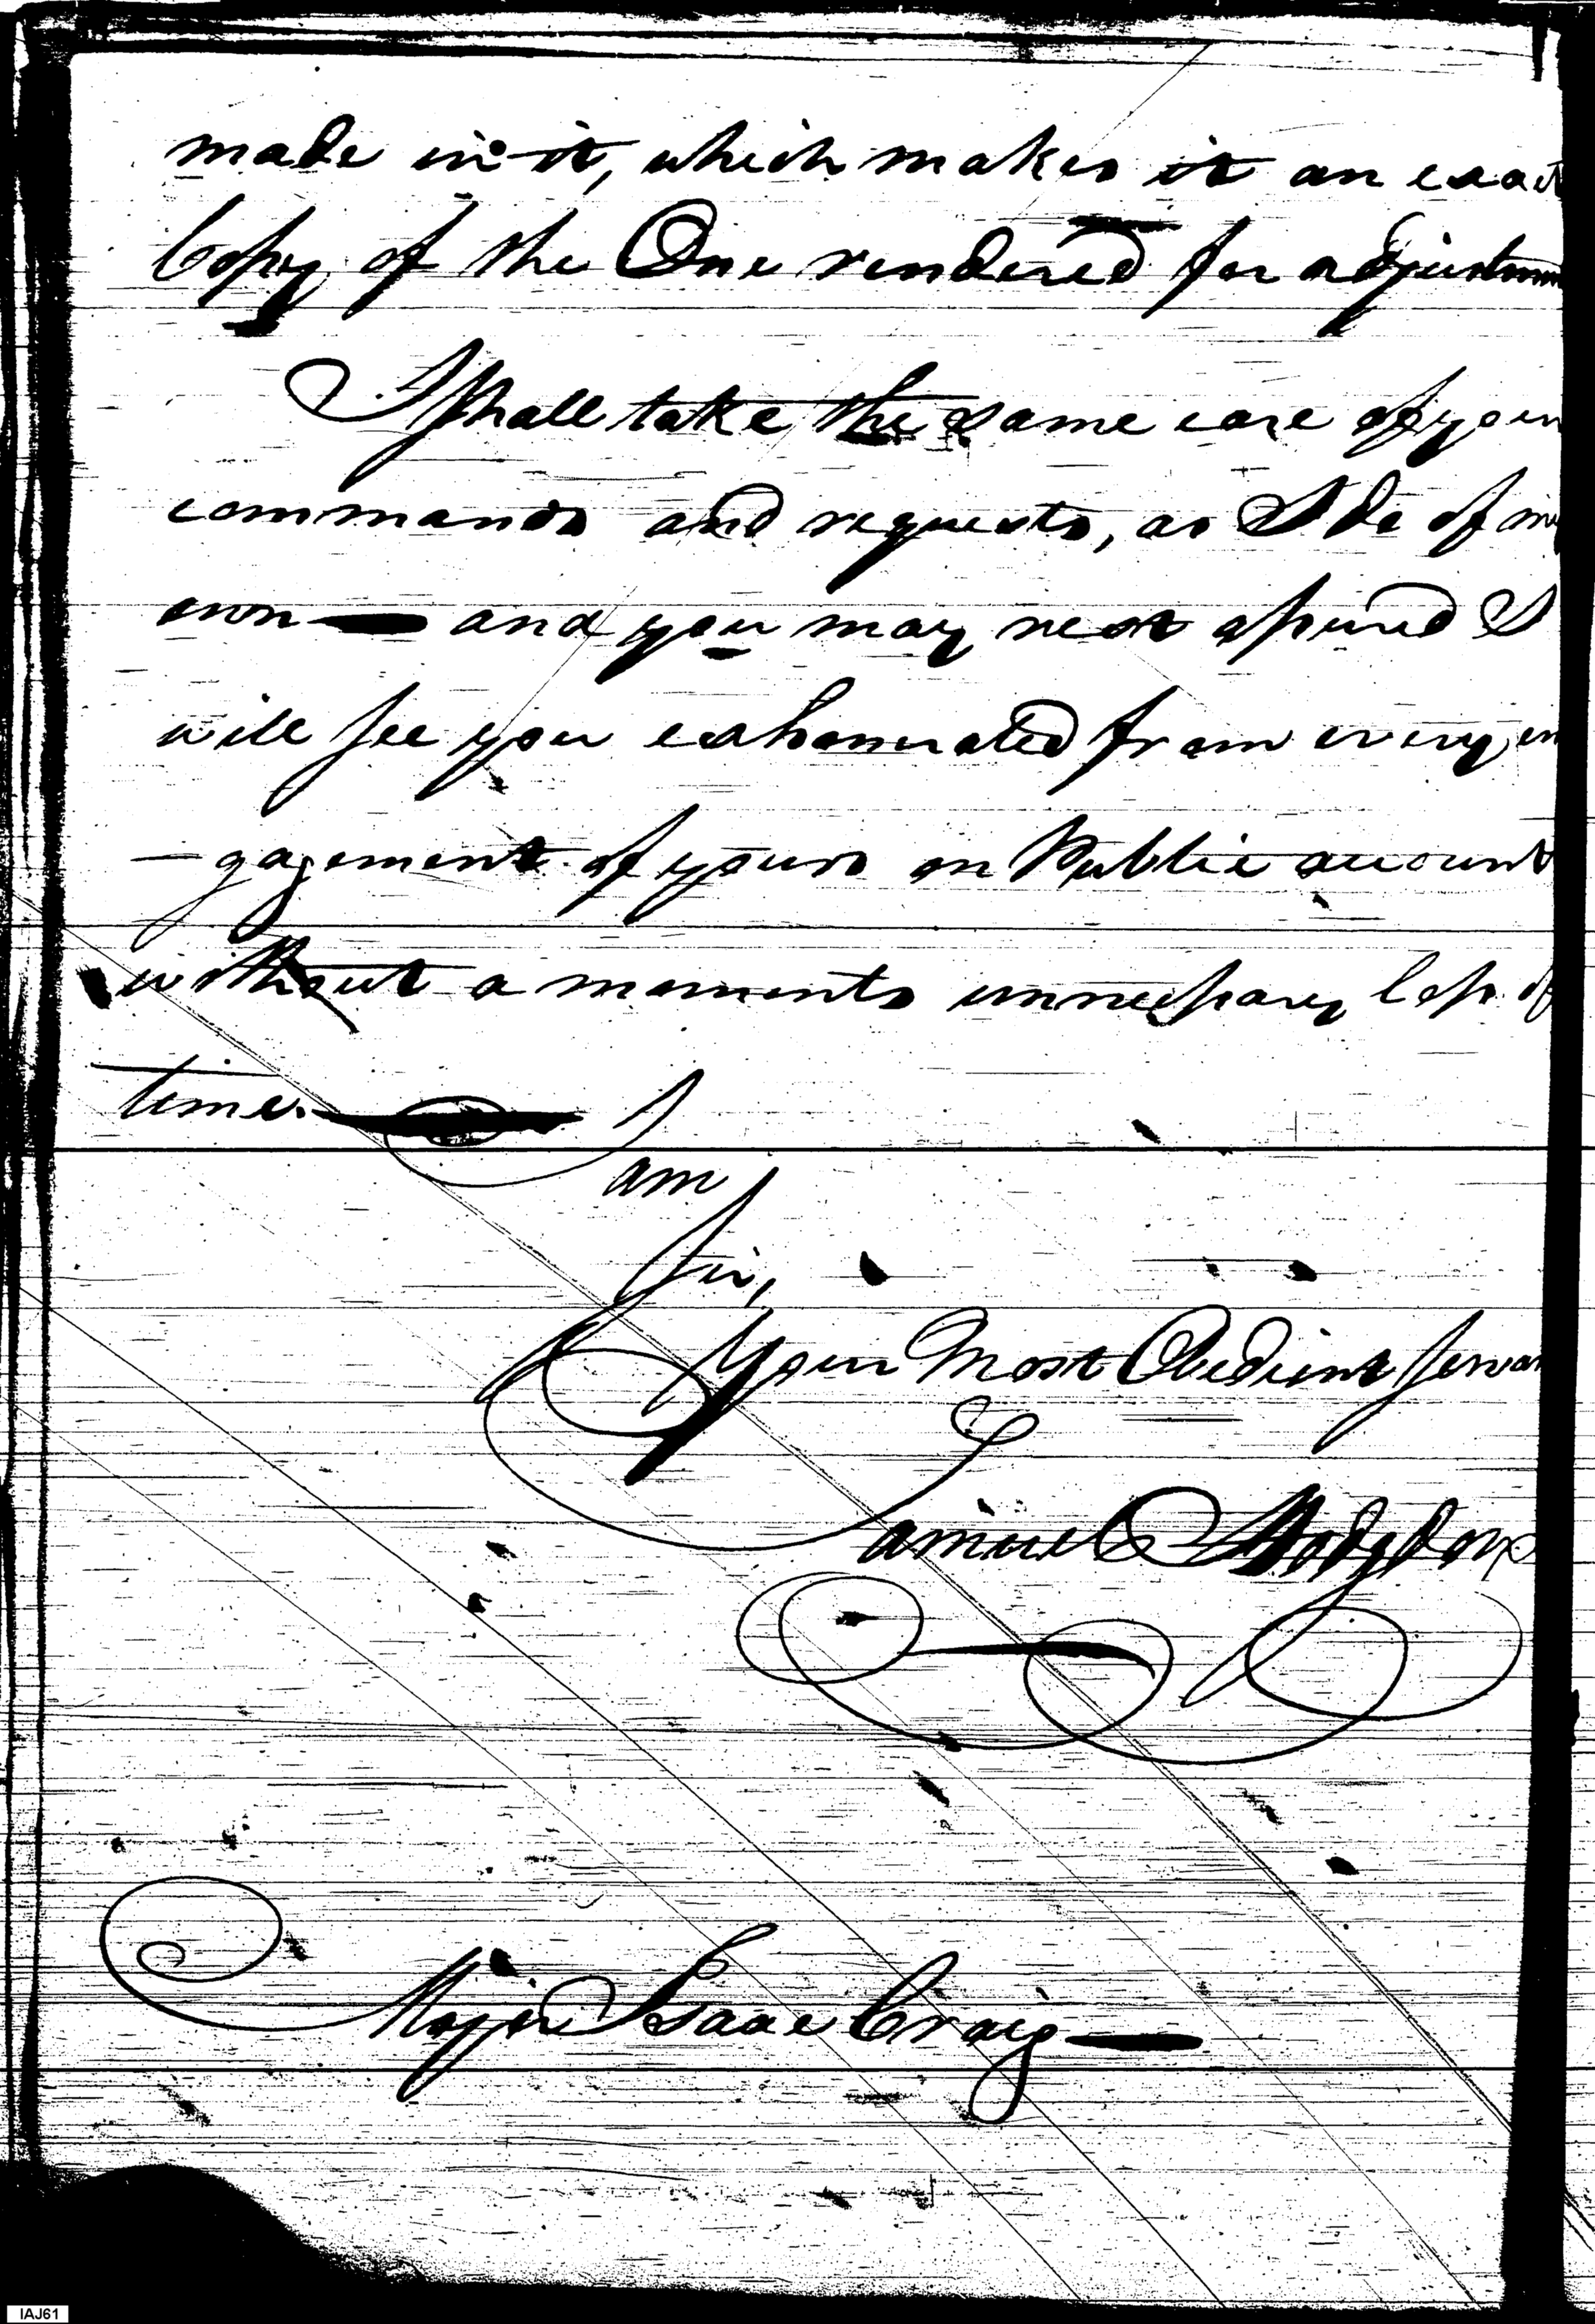 made in it, which makes it an exact
Copy of the One rendered for adjustm
I shall take the same care of your
commands and requests, as I do of my
own — and you may rest assured I
will see you exhonerated from every en
— gagement of yours on Public account
without a moments unnecessary loss of
time. — I
am
Sir,
Your Most Obedient Servan
Samuel Hodgdon
Major Isaac Craig —
IAJ61